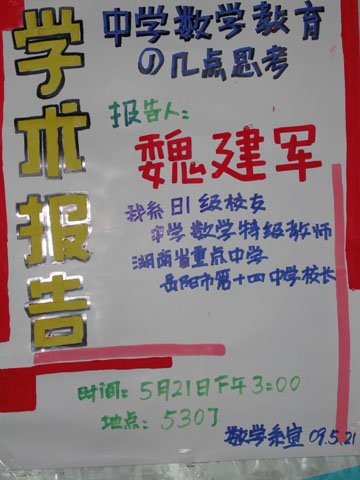 学术报告
中学数学教育
的几点思考
报告人:
魏建军
我系81级校友
中学数学特级教师
湖南省重点中学
岳阳市第十四中学校长
时间: 5月21日下午3:00
地点: 5307
数学系宣 09.5.21